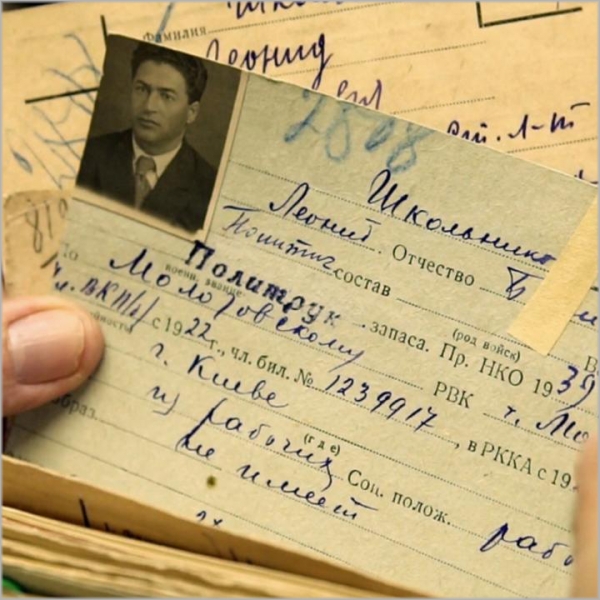 фамилия
Леонид
2808
Школьник
Леонид. Отчество Б
Политич состав
(род войск)
Политрук запаса. Пр. НКО 1939
воен. звание
По Молотовскому РВК г. Мо
чл. ВКП(б) с 1922 г., чл. бил. № 1239917, в РККА с 19
г. Киеве
(где)
из рабочих Соц. полож. рабо
образ. не имеет